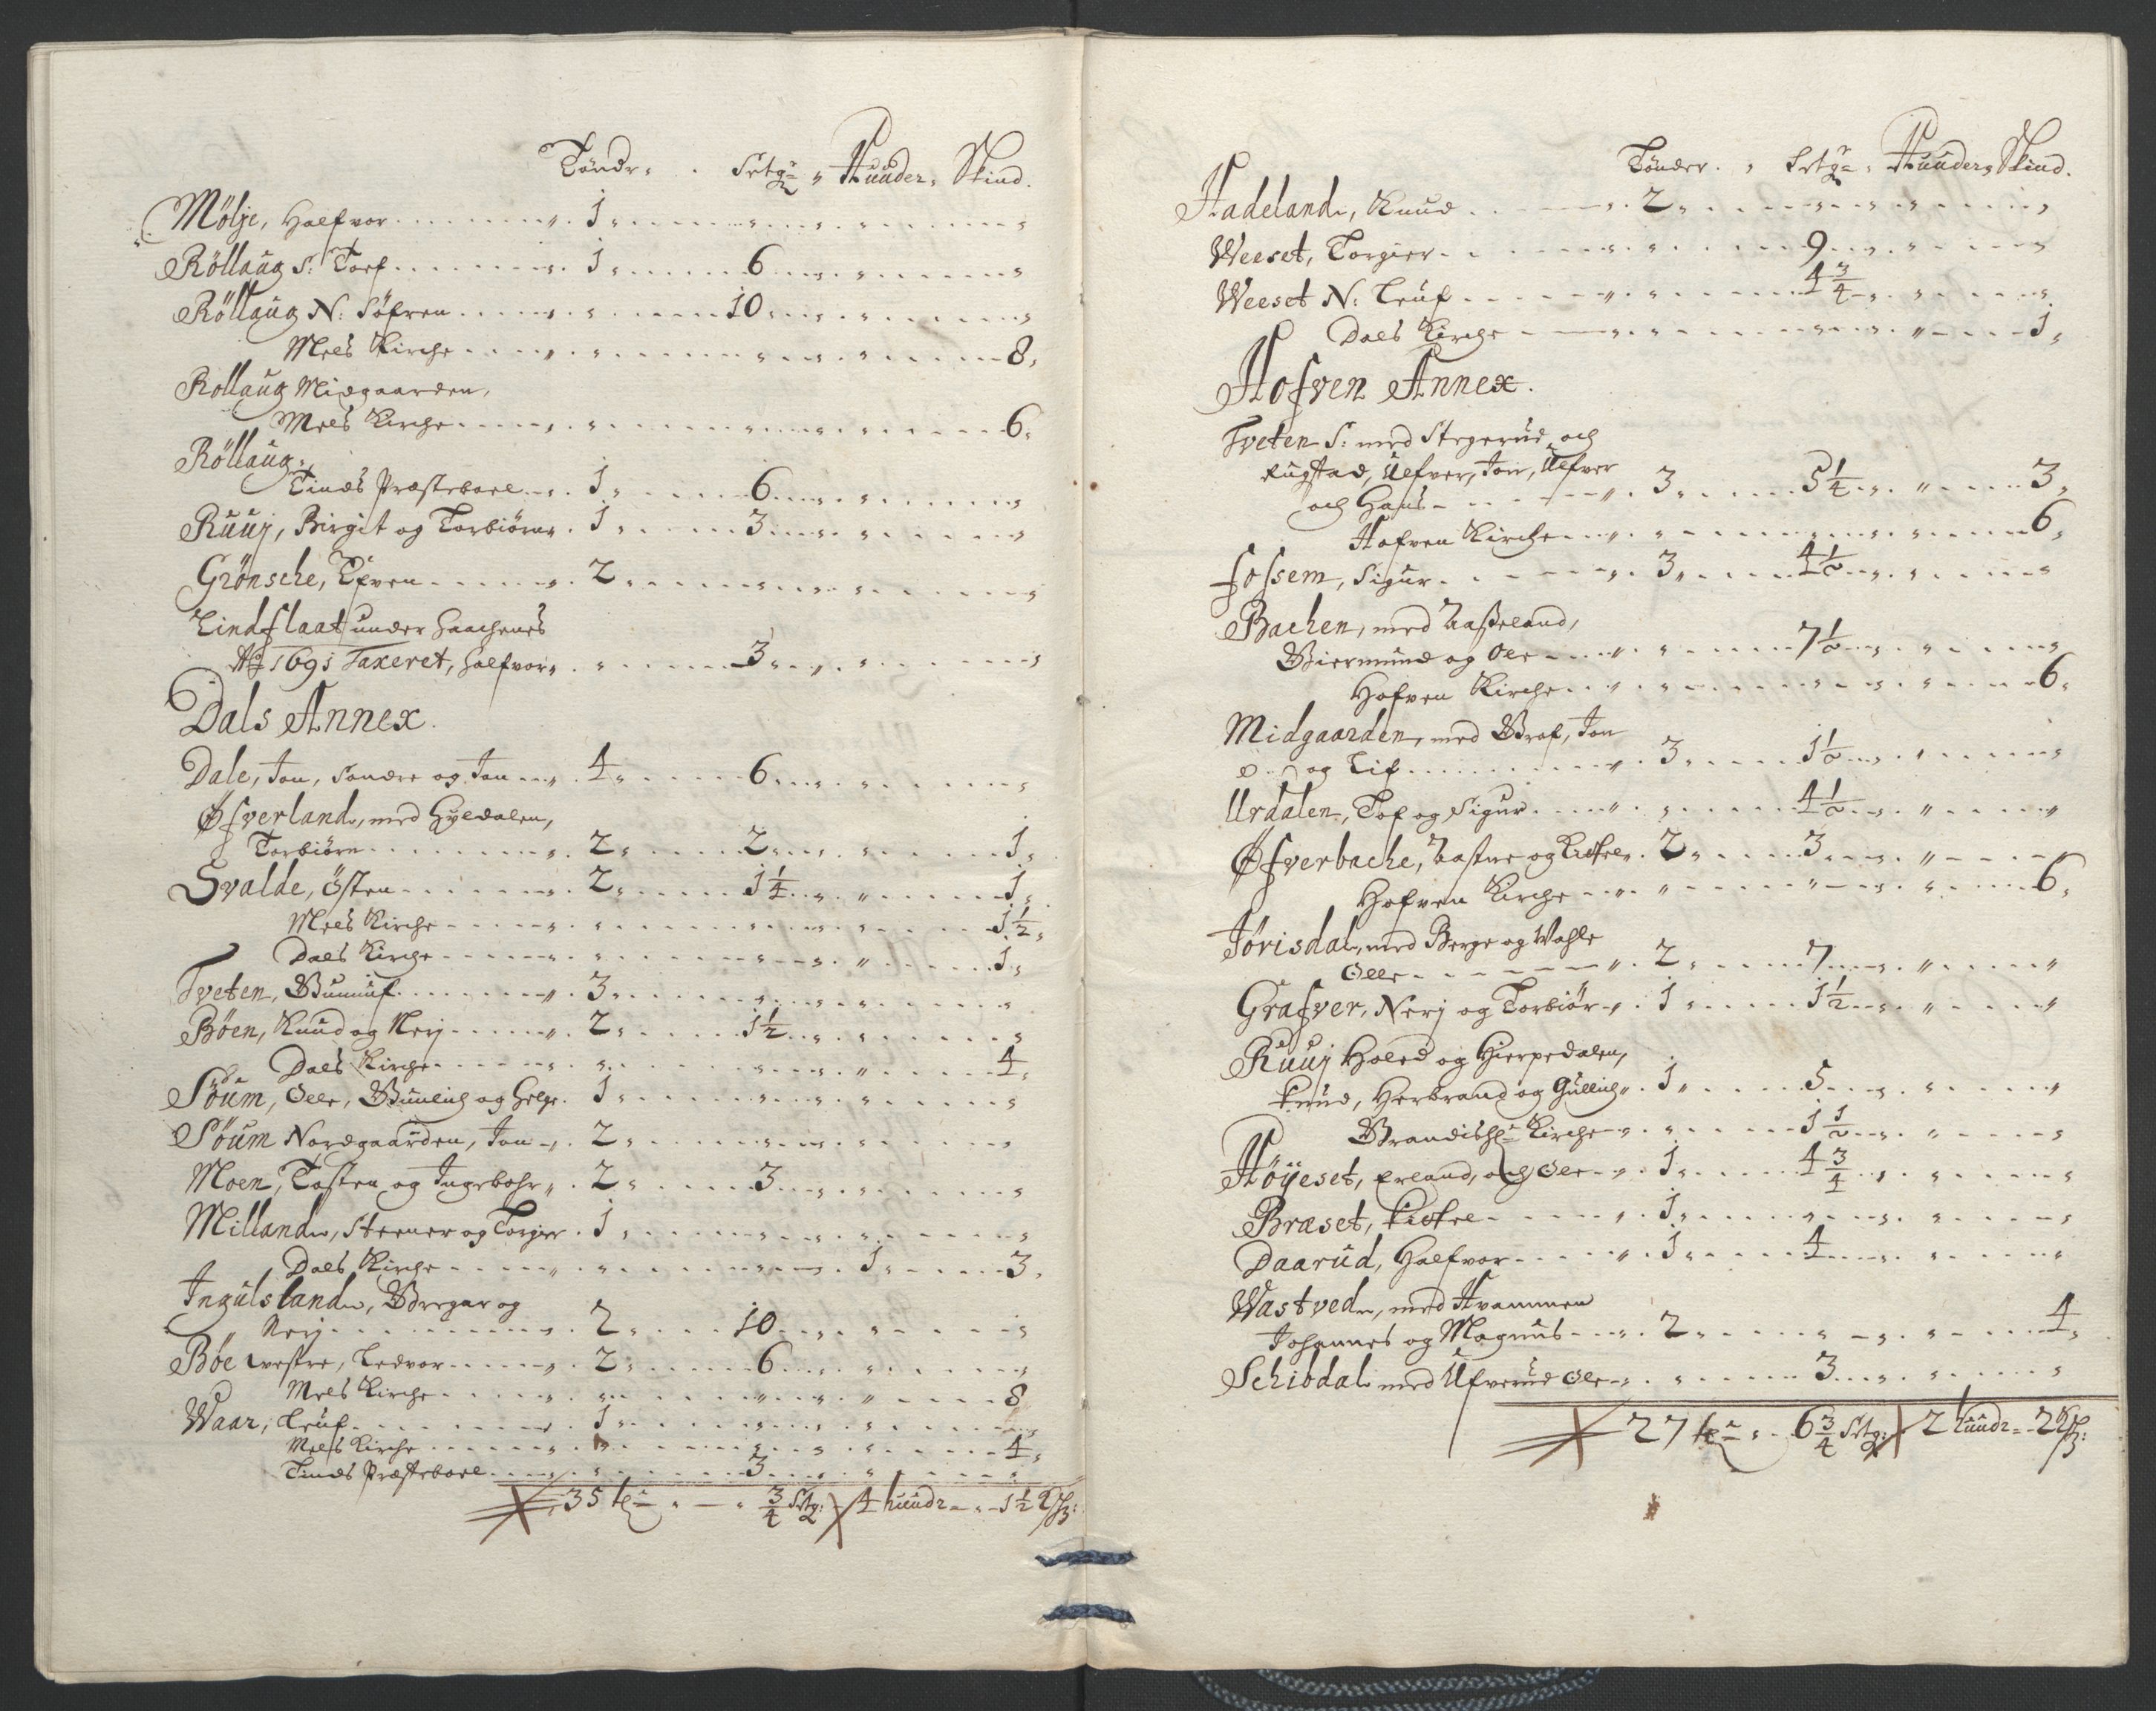 Töndr. Setg: Huuder, Skind.
Mölje, Halfvor 1
Röllaug S: Toef 1 6
Röllaug N: Söfren 10
Mels Kirche 8
Rollaug Midgaarden,
Mels Kirche 6
Röllaug,
Tinds Præstebole 1 6
Ruuj, Birgit og Torbiörn 1 3
Grönsche, Efven 2
Lindflaat under Haachenes
Ao 1691 Taxeret, Halfvor 3
Dals Annex.
Dale, Jon, Sondre og Jon 4 6
Øfverland, med Gyldalen,
Torbiörn 2 2 1
Svalde, Östen 2 1 1/4 1
Mels Kirche 1 1/2
Dals Kirche 1
Tveten, Gunnuf 3
Böen, Knud og Nerj 2 1 1/2
Dals Kirche 4
Söum, Olle, Gunlich og Helge 1
Söum Nordgaarden, Jon 2
Moen, Tosten og Ingebohr 2 3
Milland, Steener og Torgier 1
Dals Kirche 1 3
Ingulsland, Bregar og
Nerj 2 10
Böe westre, Ledvor 2 6
Mels Kirche 8
Waar, Leuf 1
Mels Kirche 4
Tinds Præstebole 3
35 tr 3/4 Setg: 4 huudr 1 1/2 sk:
Tönder. Setg: Huuder, Skind.
Hadeland, Knud 2
Weeset, Torgier 9
Weeset N: Leuf 4 3/4
Dals Kirche 1
Hofven Annex.
Tveten S: med Stegerud och
Rugstad, Ulfver, Jon, Ulfver
och Hans 3 5 1/4 3
Hofven Kirche 6
Fossem, Sigur 3 4 1/2
Bachen, med Aaseland,
Giermund og Ole 7 1/2
Hofven Kirche 6
Midgaarden, med Graf, Jon
og Lif 3 1 1/2
Urdalen, Tof og Sigur 4 1/2
Øfverbache, Aastne og Kittel 2 3
Hofven Kirche 6
Jörisdal, med Berge og Wahle
Olle 2 7
Grafver, Nerj og Torbiör 1 1 1/2
Ruuj Holed og Hierpedalen,
Knud, Herbrand og Gullich 1 5
Brandisøe Kirche 1 1/2
Höyeset, Erland, och Ole 1 4 3/4
Bræset, Kittel 1
Daarud, Halfvor 1 4
Wastved, med Hvammen
Johannes og Magnus 2 4
Schiodal med Ulfverud Ole 3
27 tr 6 3/4 Setg: 2 huudr 2 sk: